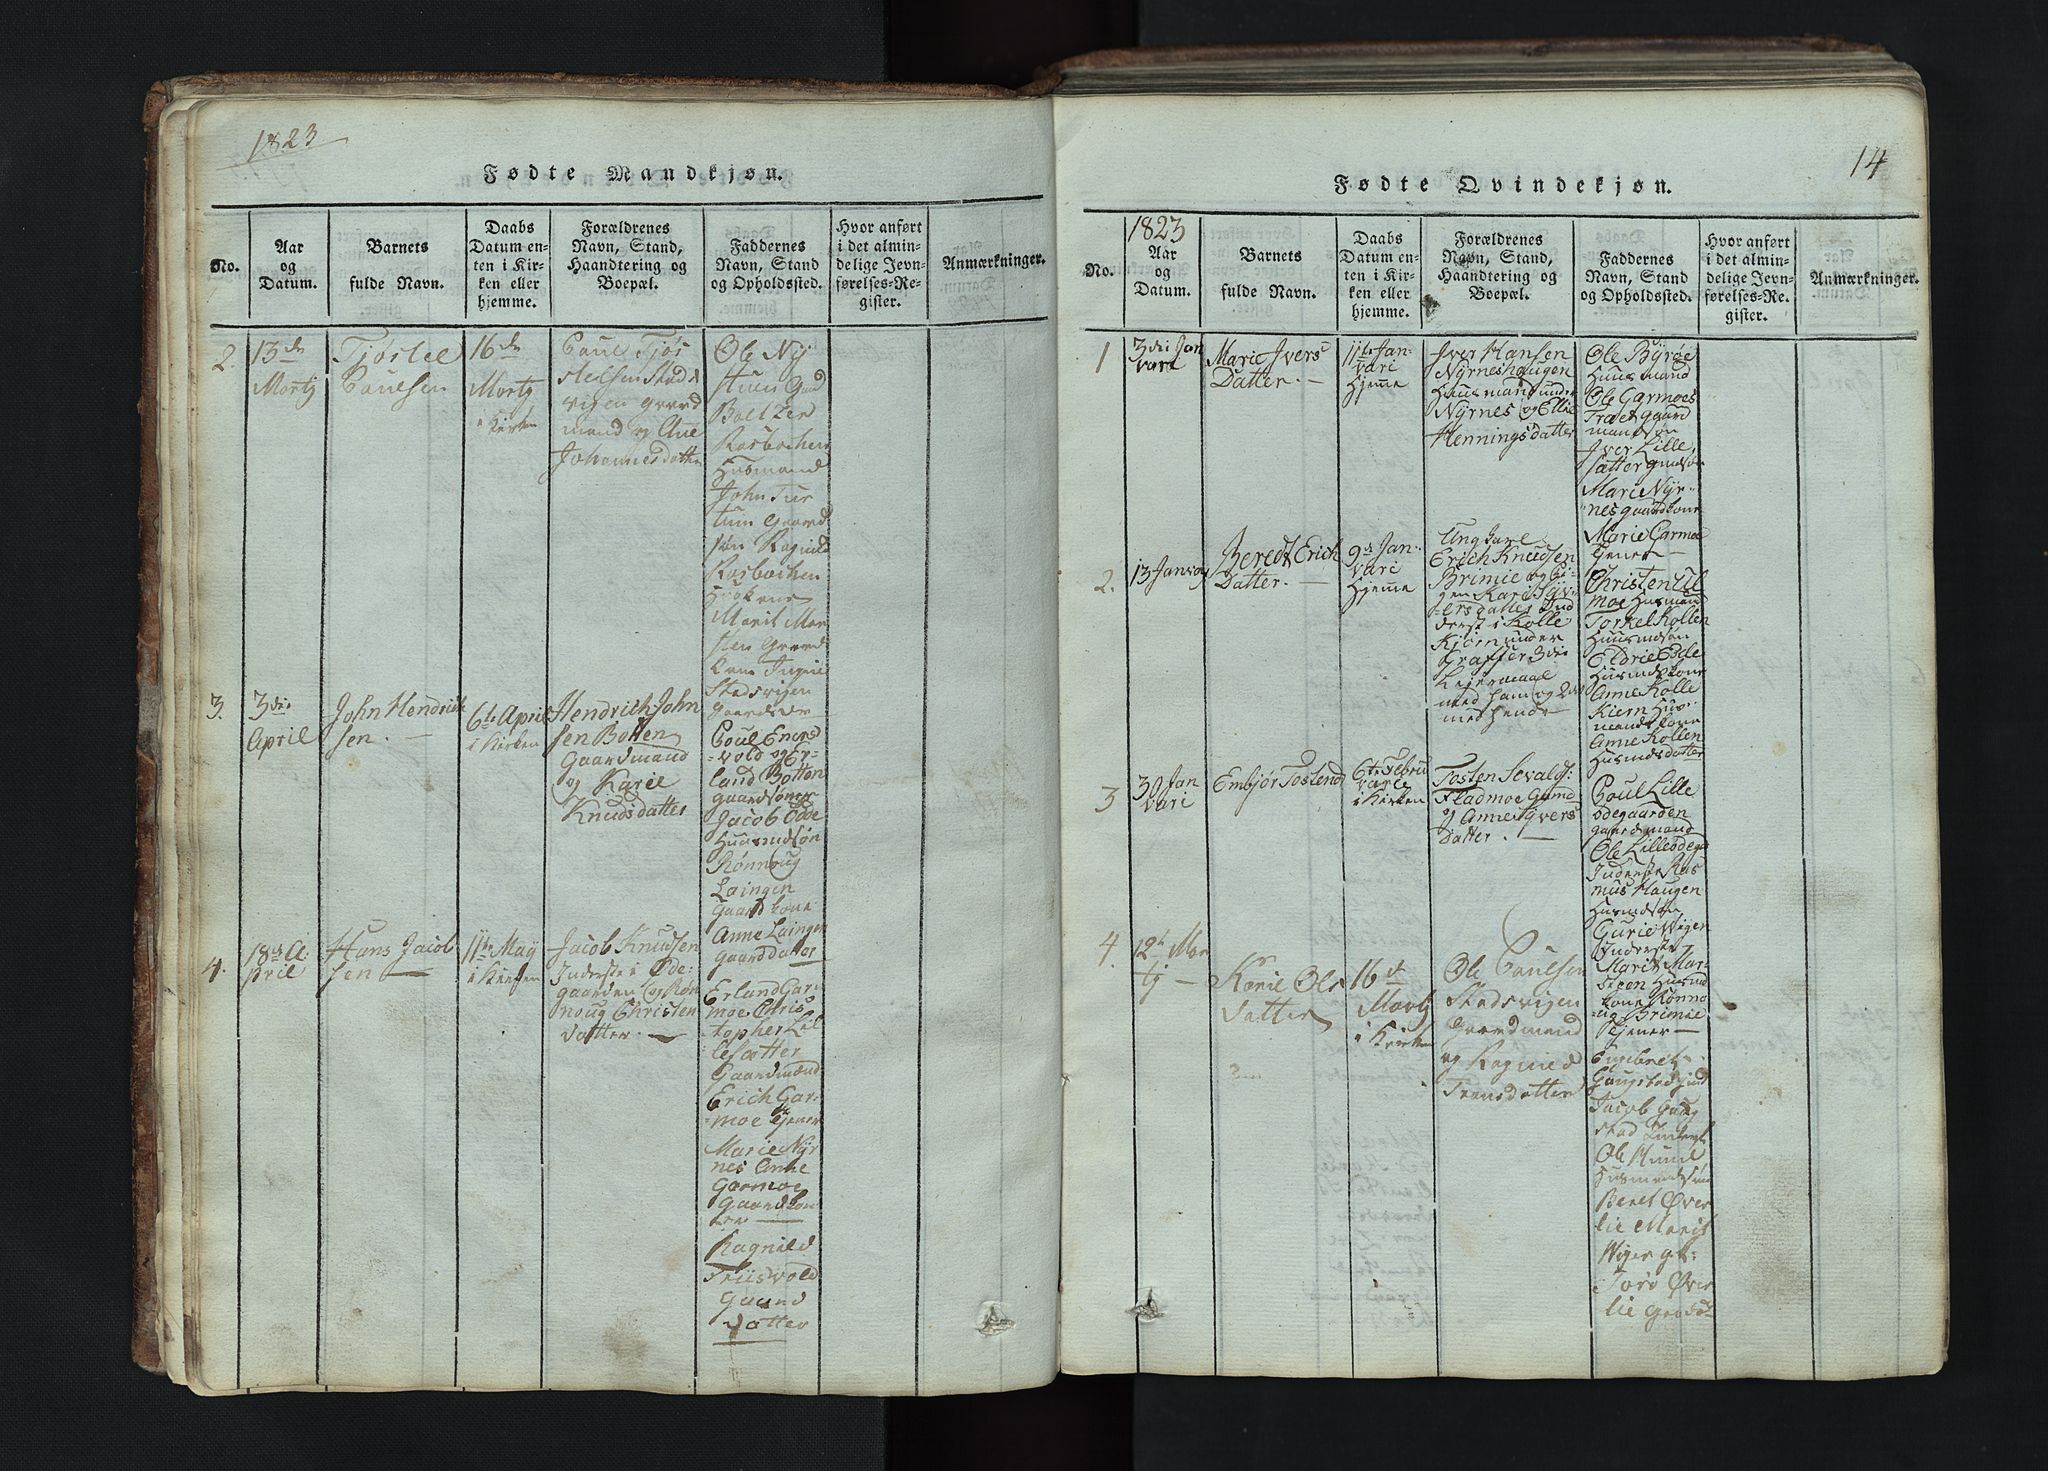 1823
Fødte Mandkjøn.
No.
Aar
og
Datum.
Barnets
fulde Navn.
Daabs
Datum en-
ten i Kir-
ken eller
hjemme.
Forældrenes
Navn, Stand,
Haandtering og
Boepæl.
Faddernes
Navn, Stand
og Opholdssted.
Hvor anført
i det almin-
delige Jevn-
førelses-Re-
gister.
Anmærkninger.
2.
13de
Martj
Tjøstel
Paulsen
16de
Martj
i Kirken
Paul Tjøs
telsen Stads
vigen Gaard
mand og Ane
Johannesdatter
Ole Ny
Rosbachen
Husmand
John
Gaard
Ragnild
Rosbachen
Marit Mar
sten Gaard
Stadsvigen
3.
3die
April
John Hendrich
sen. —
6te April
i Kirken
Hendrich John
sen Botten
Gaardmand
og Karie
Knudsdatter
Poul Eners
vold og Er-
land Botten
gaardsøner
Jacob Odde
Huusmdsøn
Rønnoug
Laingen
Gaardkone
Anne Laingen
Gaarddatter
4.
18de A-
pril
Hans Jacob
sen —
11te Maij
i Kirken
Jacob Knudsen
Inderste i Øde-
gaarden og Røn
noug Christen
datter. —
Erland Gar-
moe Chris
topher Lil
lesætter
Gaardmænd
Erich Gar-
moe Tjener
Marie Nyr
nes Anne
Garmoe
Gaardkon
er —
Ragnild
Friisvold
Gaard
datter
14
Fødte Qvindekjøn.
No.
1823
Aar
og
Datum.
Barnets
fulde Navn.
Daabs
Datum en-
ten i Kir-
ken eller
hjemme.
Forældrenes
Navn, Stand,
Haandtering og
Boepæl.
Faddernes
Navn, Stand
og Opholdssted.
Hvor anført
i det almin-
delige Jevn-
førelses-Re-
gister.
Anmærkninger.
1
3die Jan
vari
Marie Ivers
Datter. —
11te Jan-
vari
Hjeme
Iver Hansen
Nyrneshaugen
Huusmand under
Nyrnes og Ellie
Henningsdatter
Ole Byrøe
Huusmand
Ole Garmoes
Træet gaard
mandsøn
Iver Lille
sætter gmdsøn
Marie Nyr-
nes gaardkone
Marie Garmoe
tjener —
2.
13 Janvarj
Beredt Erich
Datter. —
9de Jan-
vari
Hjeme
Ungkarl
Erich Knudsen
Brimie og Pi-
gen Kari Syv-
ersdatter Ind
derst i Kolle
Kjørn under
Graffer 3die
Leiermaal
med ham og 2det
med hende
Christen Ul
moe Husmand
Torkel Kollen
Huusmdsøn
Eldrie Odde
Husmdkone
Anne Kolle
Kiern Hus-
mandskone
Anne Kollen
Husmdsdatter
3
30 Jan
vari
Embjør Tostend
6te Febru
varie
i Kirken
Tosten Sevalds:
Fladmoe Gmd
og Anne Sivers
datter. —
Poul Lille
ødegaarden
gaardmand
Ole Lilleødega
Inderste Ras
mus Haugen
Husmdsøn
Gurie Vigen
Inderste
Marit Mar-
steen Husmd
kone Rønno
ug Brimie
tjener —
4.
12te Mar
tj —
Karie Ols
datter
16de
Martj
i Kirken
Ole Paulsen
Stadsvigen
Gaardmand
og Ragnild
Trondsdatter
Engebret
Gaugstad
Jacob Gaug
stad
Ole
Husmandsøn
Beret Øver
lie Marit
Toro Øver
lie